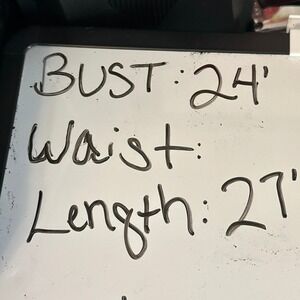 BUST: 24'
Waist:
Length: 27'